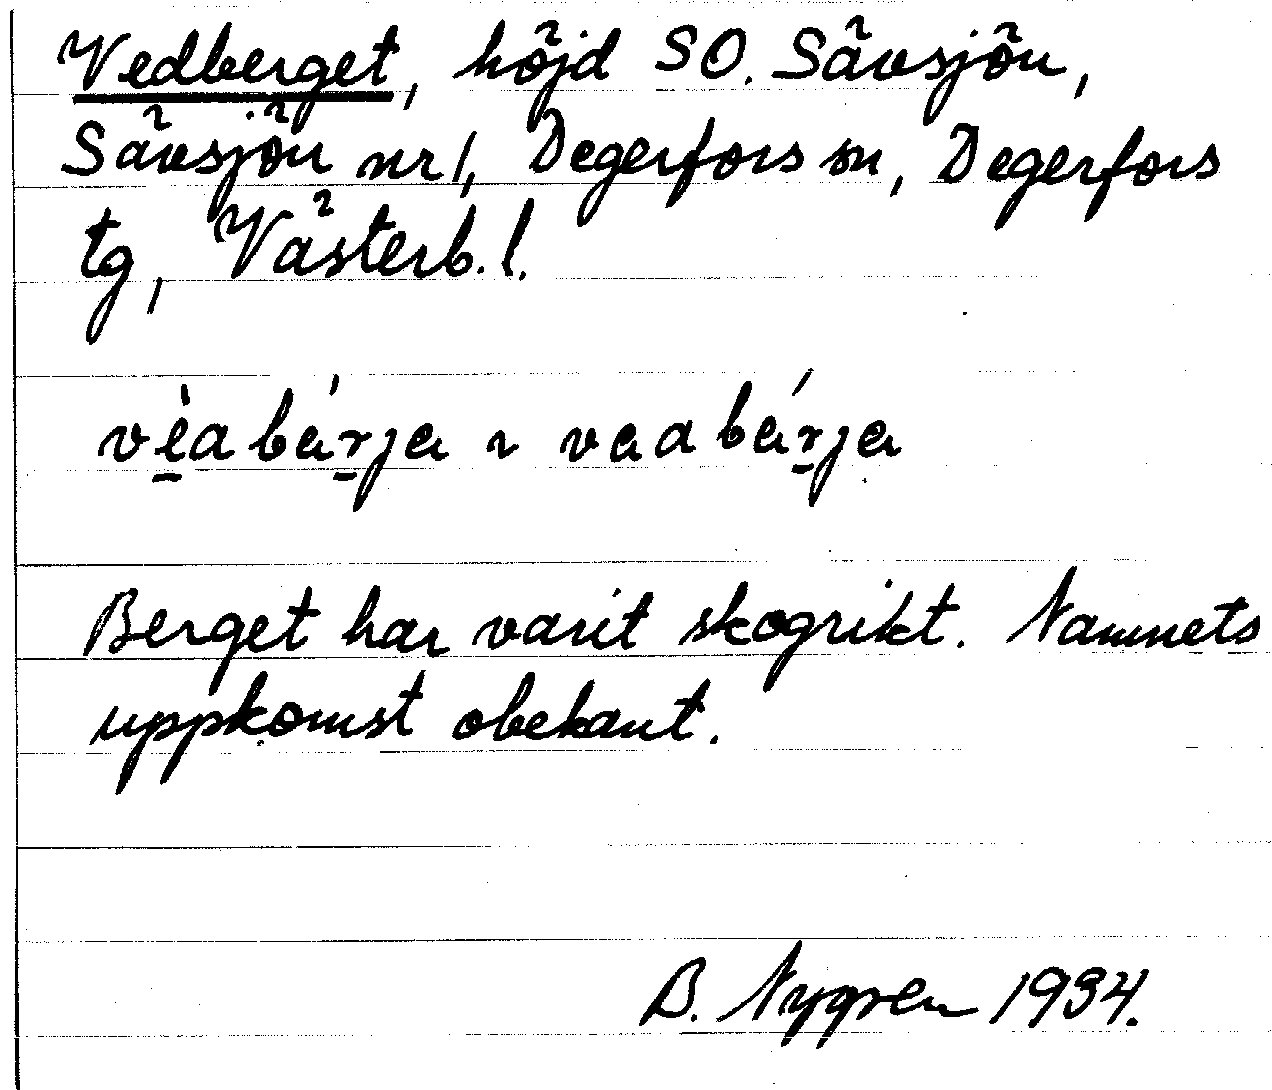 Vedberget, höjd SO. Sävsjön,
Sävsjön nr 1, Degerfors sn, Degerfors
tg, Västerb. l.
vèabárja ~ veabárja
Berget har varit skogrikt. Namnets
uppkomst obekant.
B. Nygren 1934.